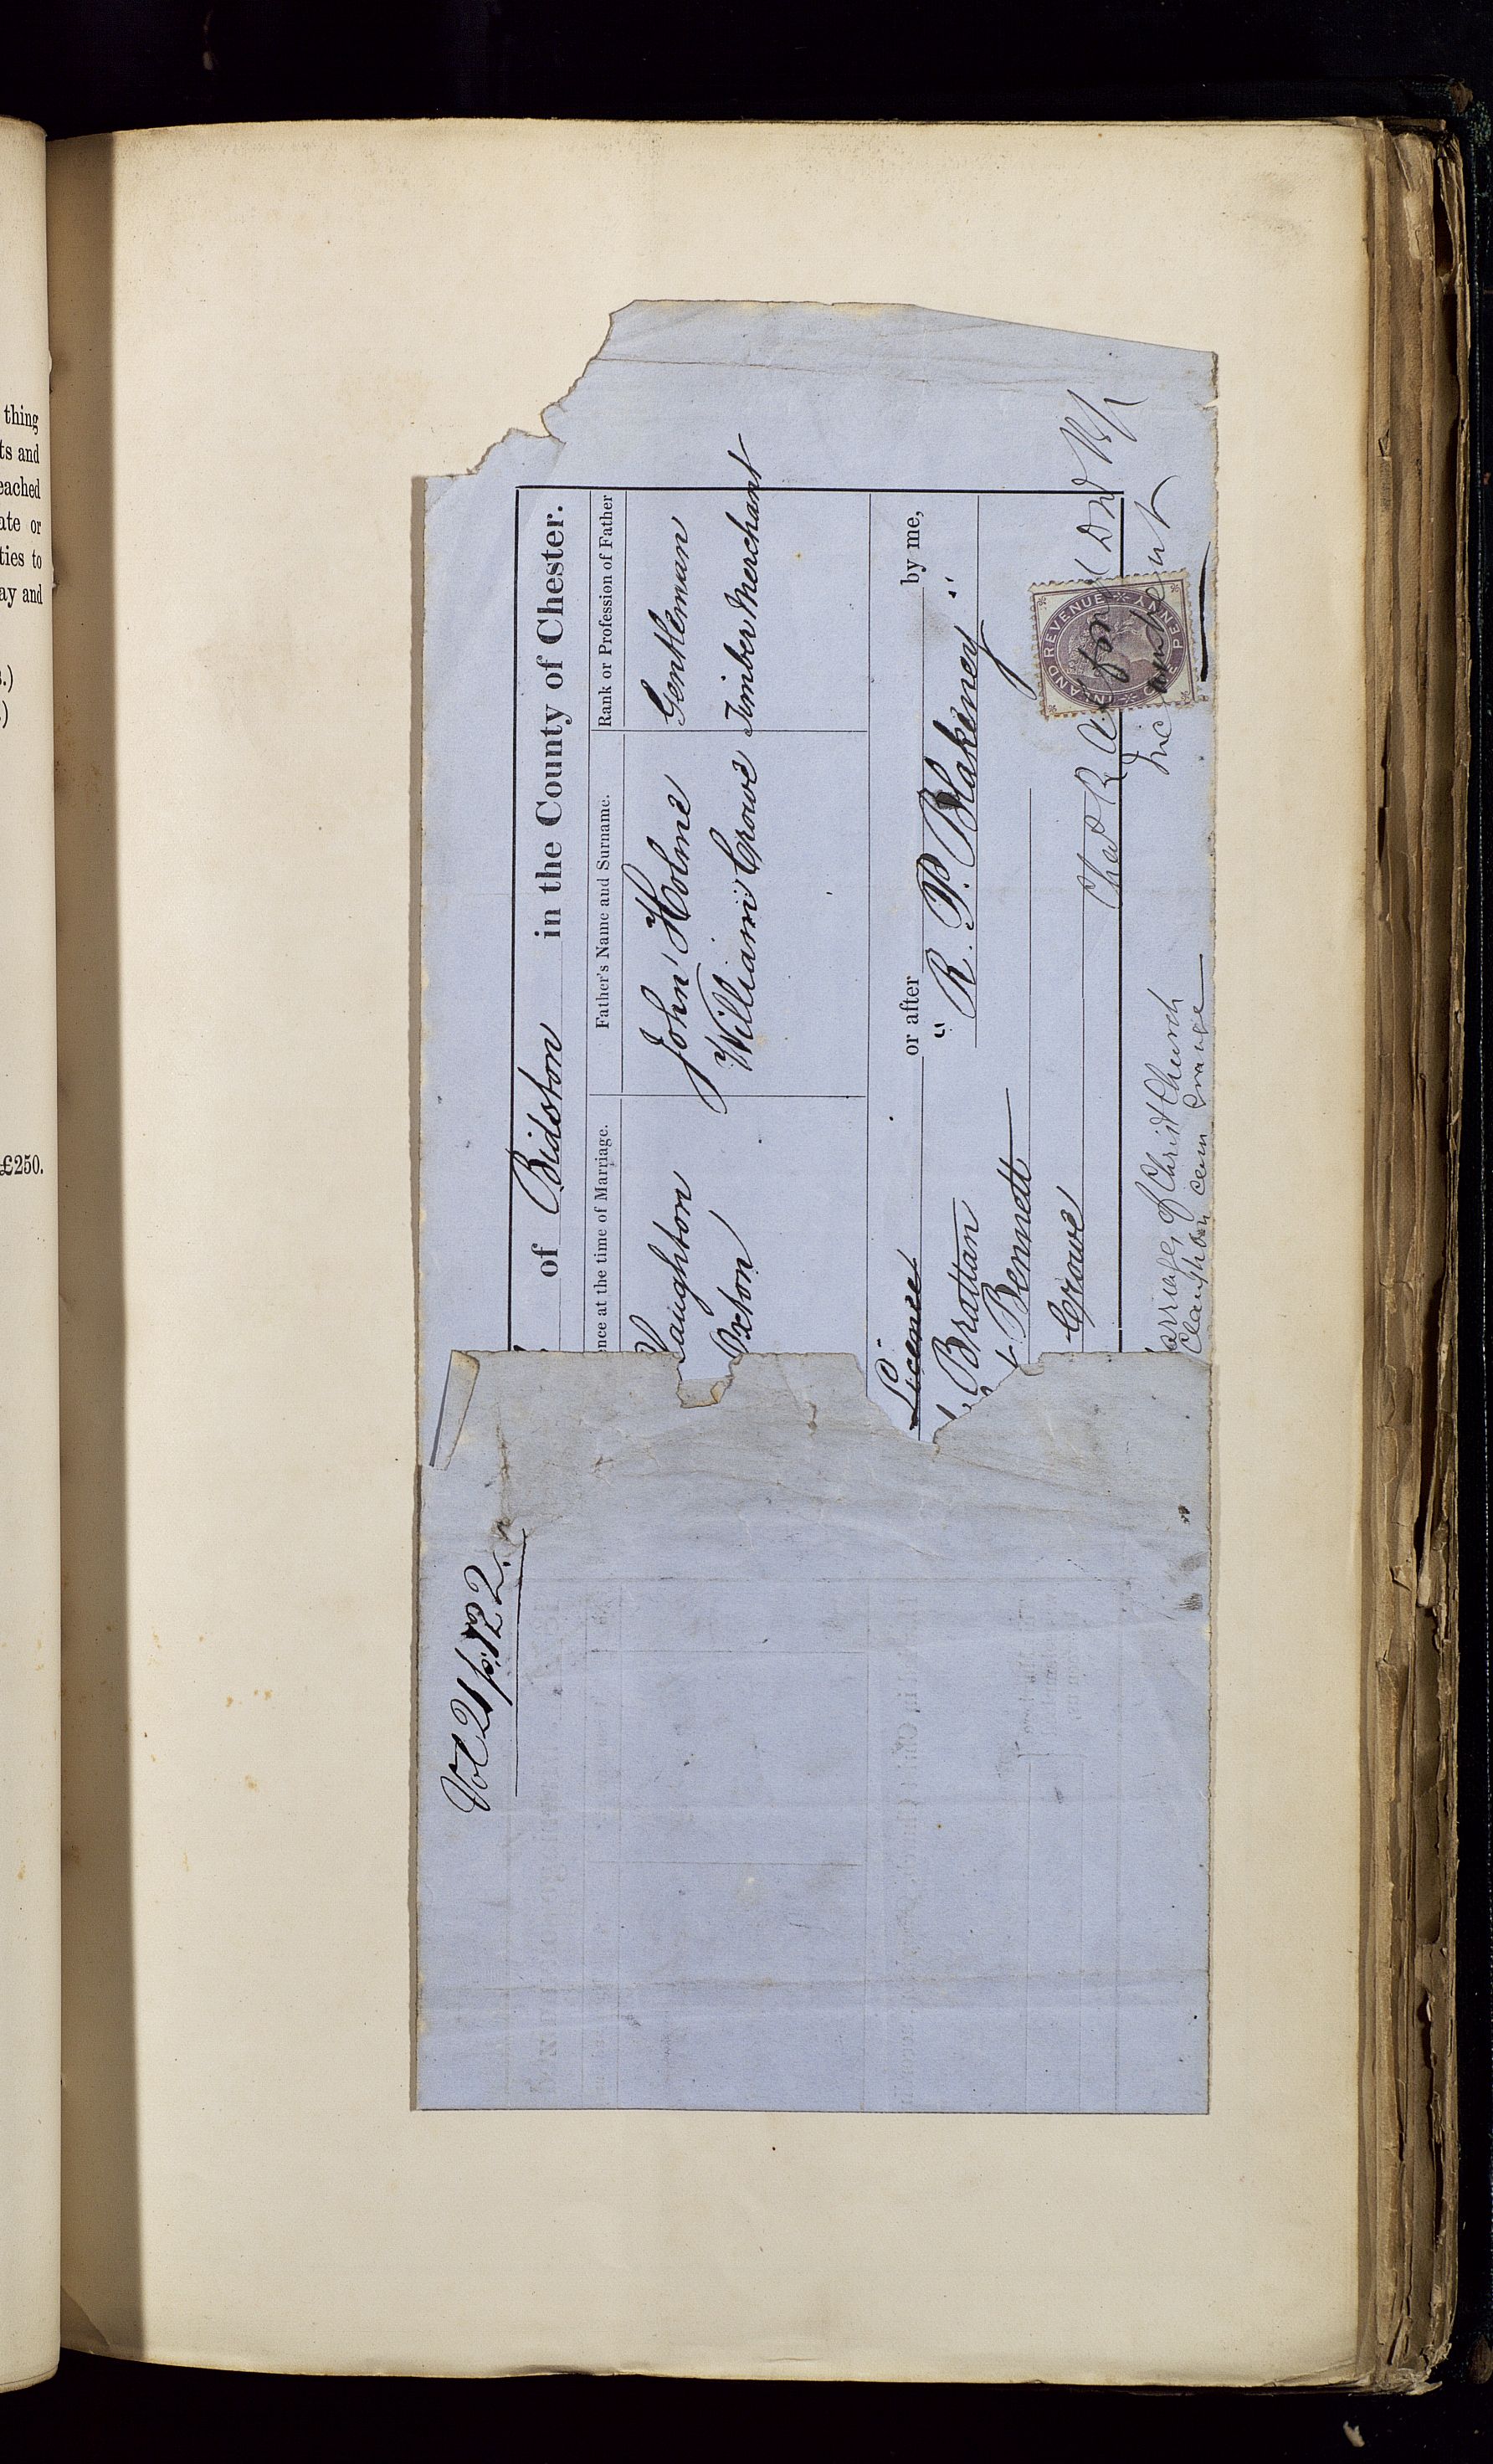 thing
ts and
eached
ate or
ties to
ay and
s.)
.)
£250.
of Bidston in the County of Chester.
nce at the time of Marriage.
Father's Name and Surname.
Rank or Profession of Father
Claughton
John Holme
Gentleman
Oxton
William Crowe
Timber Merchant
Licence or after by me,
Brattan
" R. P. Blakeney "
Bennett
Crowe
Chas R
INLAND REVENUE
ONE PENNY
Incumbent
arriages of Christ Church
Claughton cum Grange
Vol 21 p. 122.